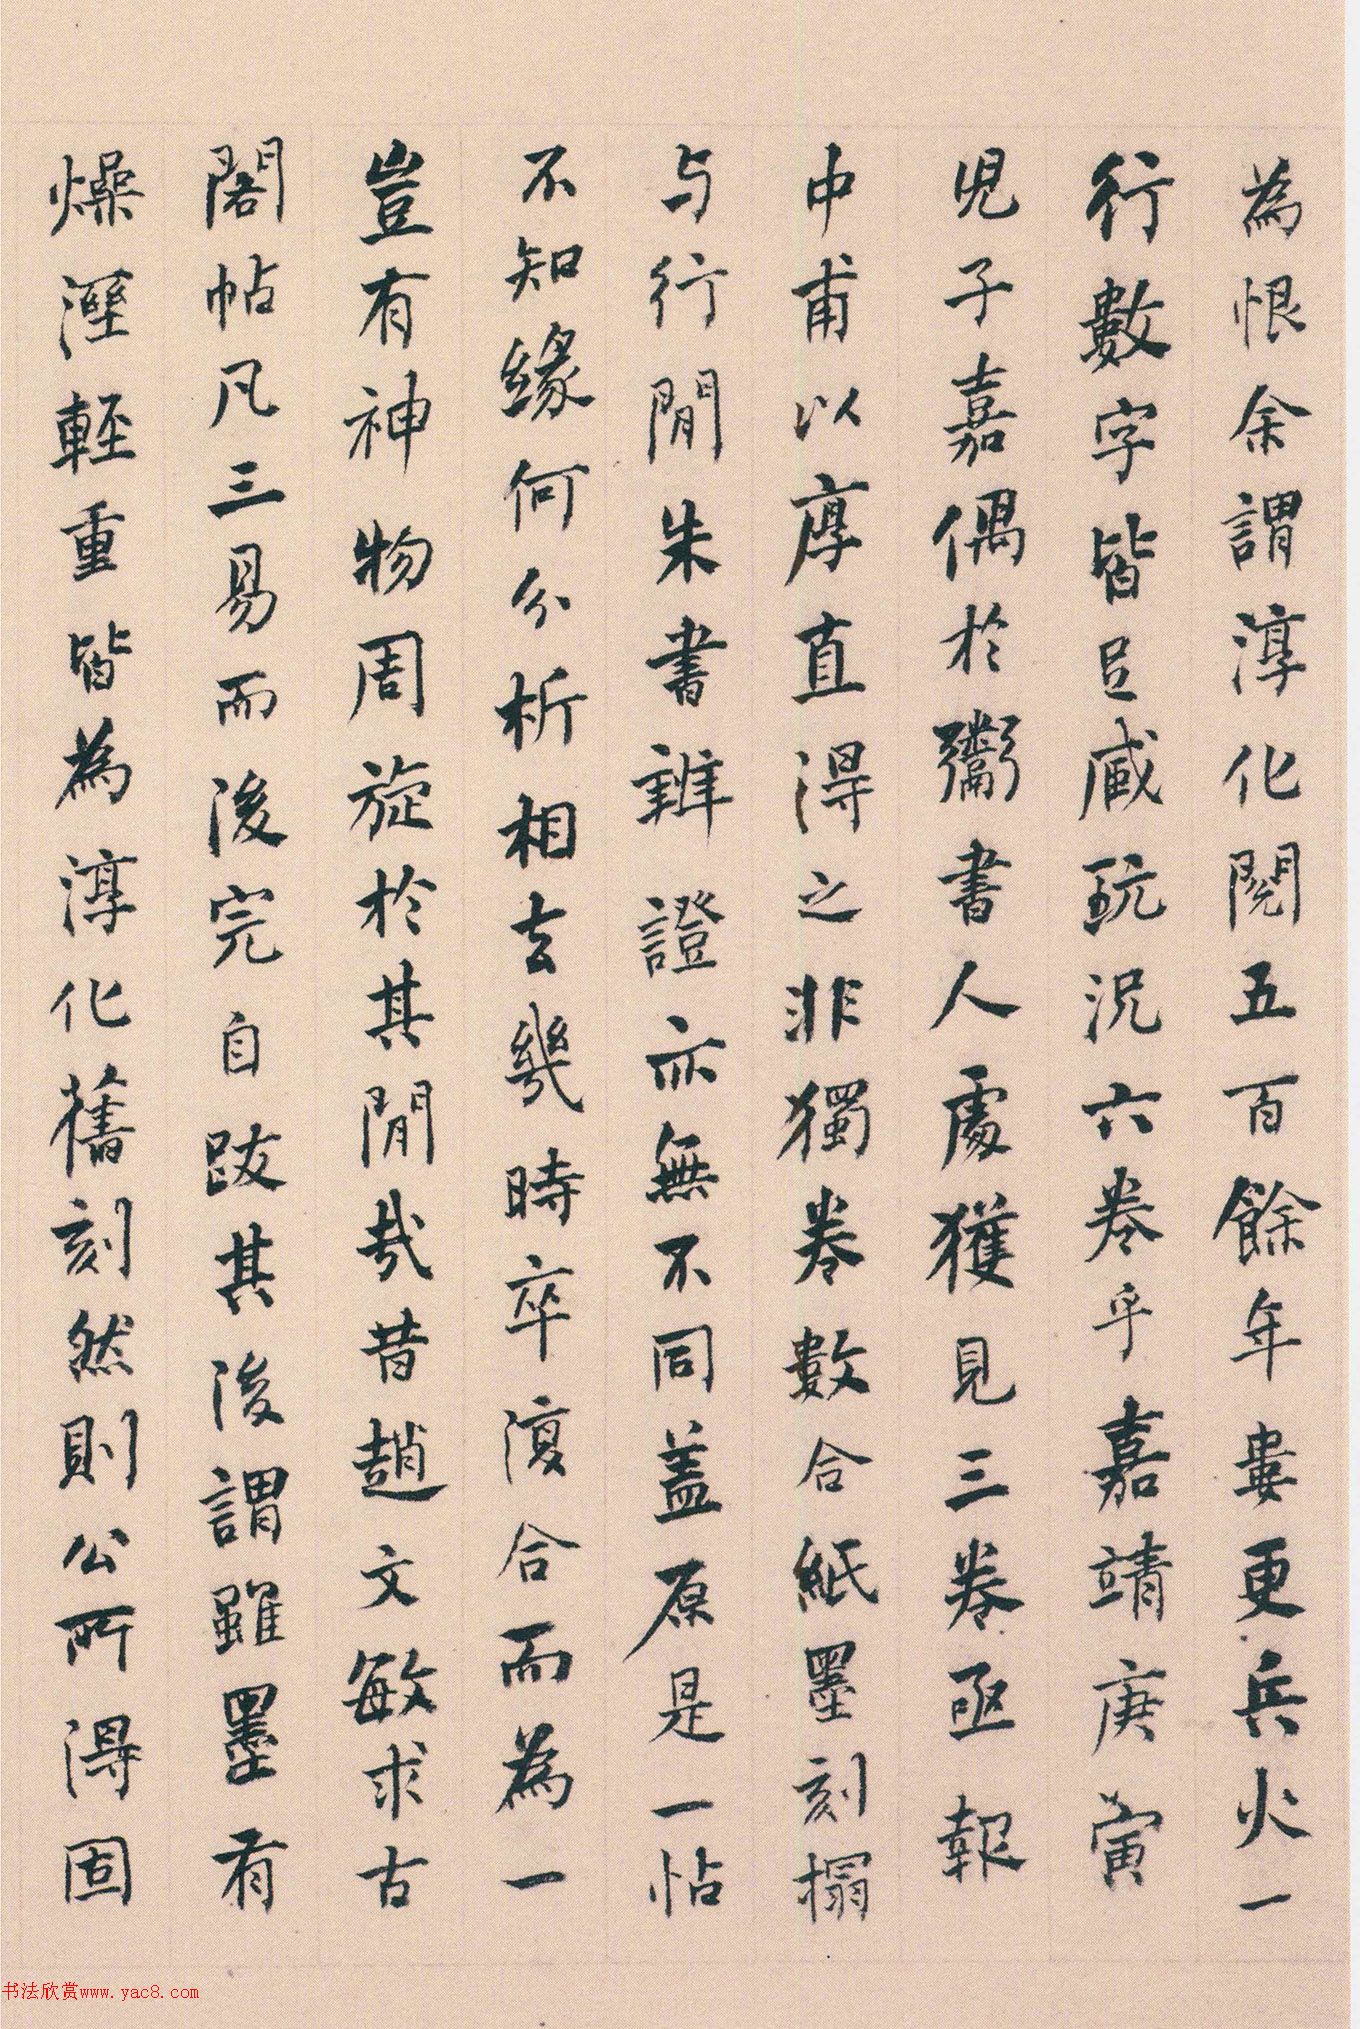 為恨余謂淳化閱五百餘年婁更兵火一
行數字皆足藏玩況六卷乎嘉靖庚寅
兒子嘉偶於鬻書人處獲見三卷亟報
中甫以厚直得之非獨卷數合紙墨刻榻
与行間朱書辨證亦無不同蓋原是一帖
不知緣何分析相去幾時卒復合而為一
豈有神物周旋於其間哉昔趙文敏求古
閣帖凡三易而後完自跋其後謂雖墨有
燥溼輕重皆為淳化舊刻然則公所得固
书法欣赏www.yac8.com